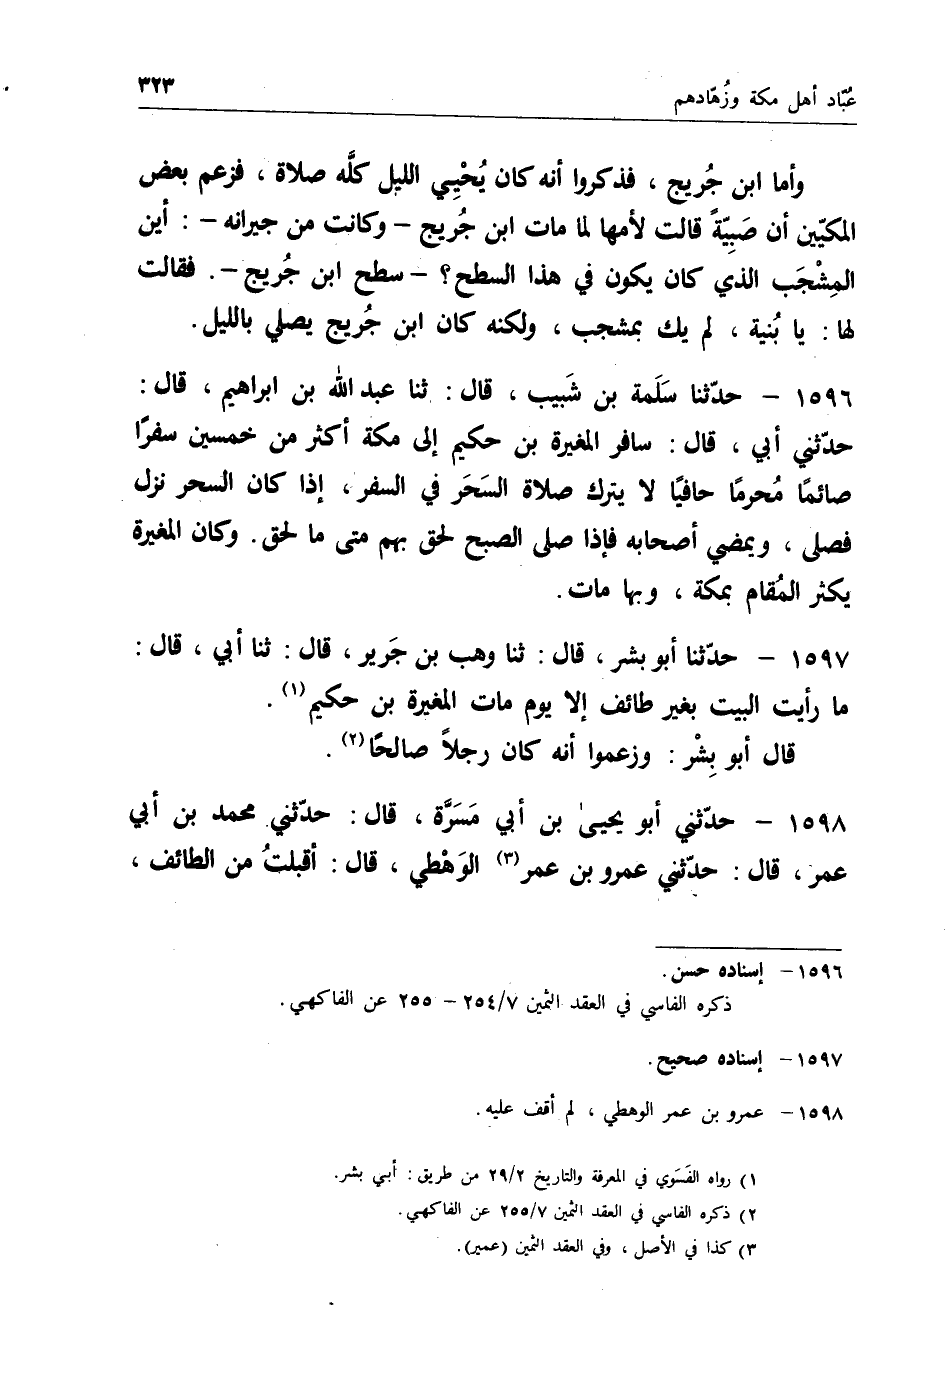 عُبّاد أهل مكة وزُهّادهم ٣٢٣
وأما ابن جُريج ، فذكروا أنه كان يُحْيِي الليل كلَّه صلاة ، فزعم بعض
المكيّين أن صَبِيّةً قالت لأمها لما مات ابن جُريج – وكانت من جيرانه – : أين
المِشْجَب الذي كان يكون في هذا السطح؟ – سطح ابن جُريج –. فقالت
لها : يا بُنية ، لم يك بمشجب ، ولكنه كان ابن جُريج يصلي بالليل.
١٥٩٦ – حدّثنا سَلَمة بن شَبيب ، قال : ثنا عبد الله بن ابراهيم ، قال :
حدّثني أبي ، قال : سافر المغيرة بن حكيم إلى مكة أكثر من خمسين سفرًا
صائمًا مُحرمًا حافيًا لا يترك صلاة السَحَر في السفر ، إذا كان السحر نزل
فصلى ، ويمضي أصحابه فإذا صلى الصبح لحق بهم متى ما لحق. وكان المغيرة
يكثر المُقام بمكة ، وبها مات.
١٥٩٧ – حدّثنا أبو بشر ، قال : ثنا وهب بن جَرير ، قال : ثنا أبي ، قال :
ما رأيت البيت بغير طائف إلا يوم مات المغيرة بن حكيم(١) .
قال أبو بِشْر : وزعموا أنه كان رجلاً صالحًا(٢) .
١٥٩٨ – حدّثني أبو يحيىٰ بن أبي مَسَرَّة ، قال : حدّثني محمد بن أبي
عمر ، قال : حدّثني عمرو بن عمر(٣) الوَهْطي ، قال : أقبلتُ من الطائف ،
١٥٩٦ – إسناده حسن.
ذكره الفاسي في العقد الثمين ٢٥٤/٧ – ٢٥٥ عن الفاكهي.
١٥٩٧ – إسناده صحيح.
١٥٩٨ – عمرو بن عمر الوهطي ، لم أقف عليه.
١) رواه الفَسَوي في المعرفة والتاريخ ٢٩/٢ من طريق : أبي بشر.
٢) ذكره الفاسي في العقد الثمين ٢٥٥/٧ عن الفاكهي.
٣) كذا في الأصل ، وفي العقد الثمين (عمير).